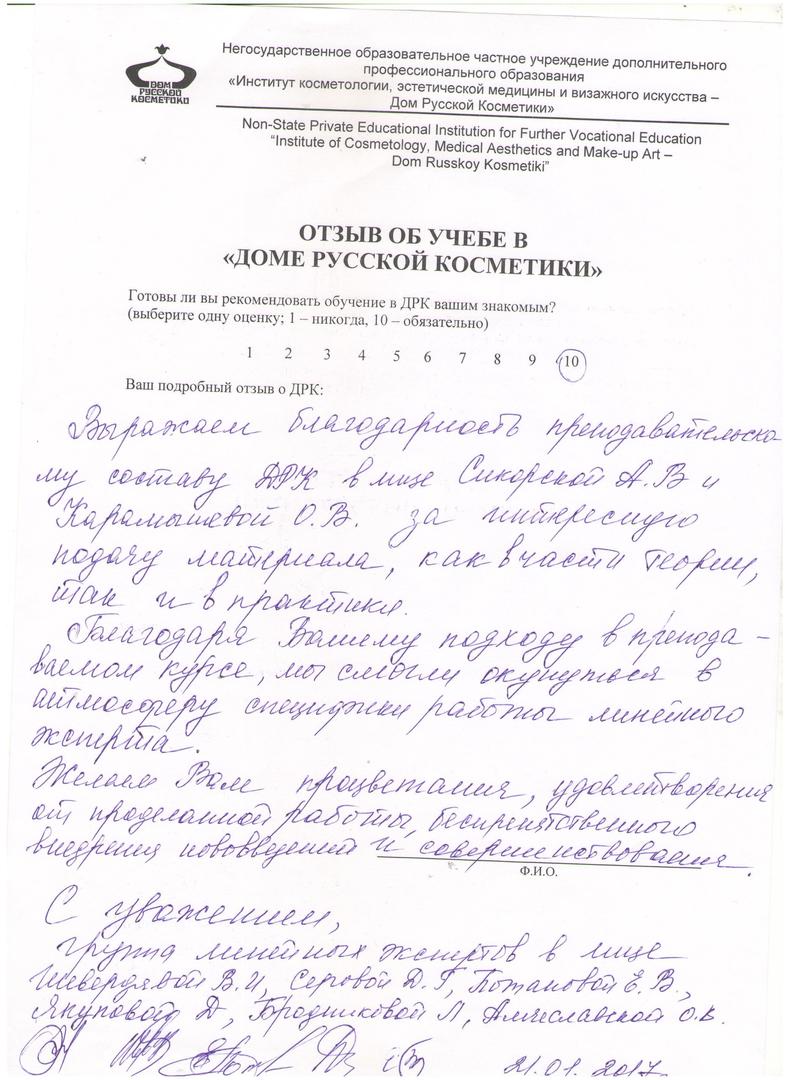 ДОМ
РУССКОЙ
КОСМЕТИКИ
Негосударственное образовательное частное учреждение дополнительного
профессионального образования
«Институт косметологии, эстетической медицины и визажного искусства –
Дом Русской Косметики»
Non-State Private Educational Institution for Further Vocational Education
“Institute of Cosmetology, Medical Aesthetics and Make-up Art –
Dom Russkoy Kosmetiki”
ОТЗЫВ ОБ УЧЕБЕ В
«ДОМЕ РУССКОЙ КОСМЕТИКИ»
Готовы ли вы рекомендовать обучение в ДРК вашим знакомым?
(выберите одну оценку; 1 – никогда, 10 – обязательно)
1 2 3 4 5 6 7 8 9 10
Ваш подробный отзыв о ДРК:
Выражаем благодарность преподавательско
му составу ДРК в лице Сикорской А.В и
Карамышевой О.В. за интересную
подачу материала, как в части теории,
так и в практики.
Благодаря Вашему подходу в препода-
ваемом курсе, мы смогли окунуться в
атмосферу специфики работы линейного
эксперта.
Желаем Вам процветания, удовлетворения
от проделанной работы, беспрепятственного
внедрения нововведений и совершенствования.
Ф.И.О.
С уважением,
группа линейных экспертов в лице
В.И, Серовой Д.Г, Потаповой Е.В.,
Якуповой Д, Бродниковой Л, О.К.
21.01.2017